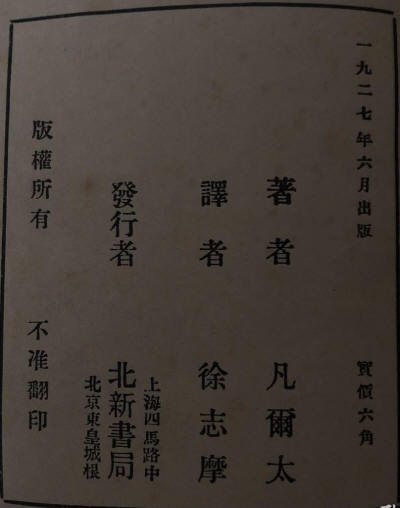 一九二七年六月出版 實價六角
著者 凡爾太
譯者 徐志摩
發行者 北新書局
上海四馬路中
北京東皇城根
版權所有 不准翻印